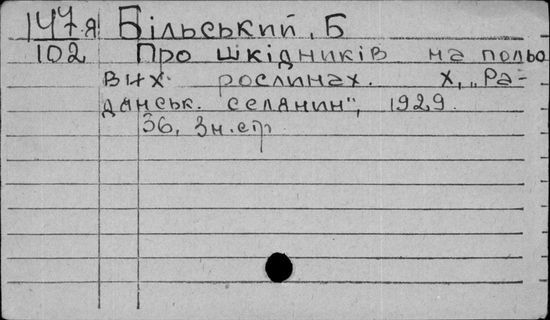 147.я Більський, Б
102 Про шкідників на польо
вих рослинах. Х, „Ра-
данськ. селянин", 1929.
36, 3н.стр.